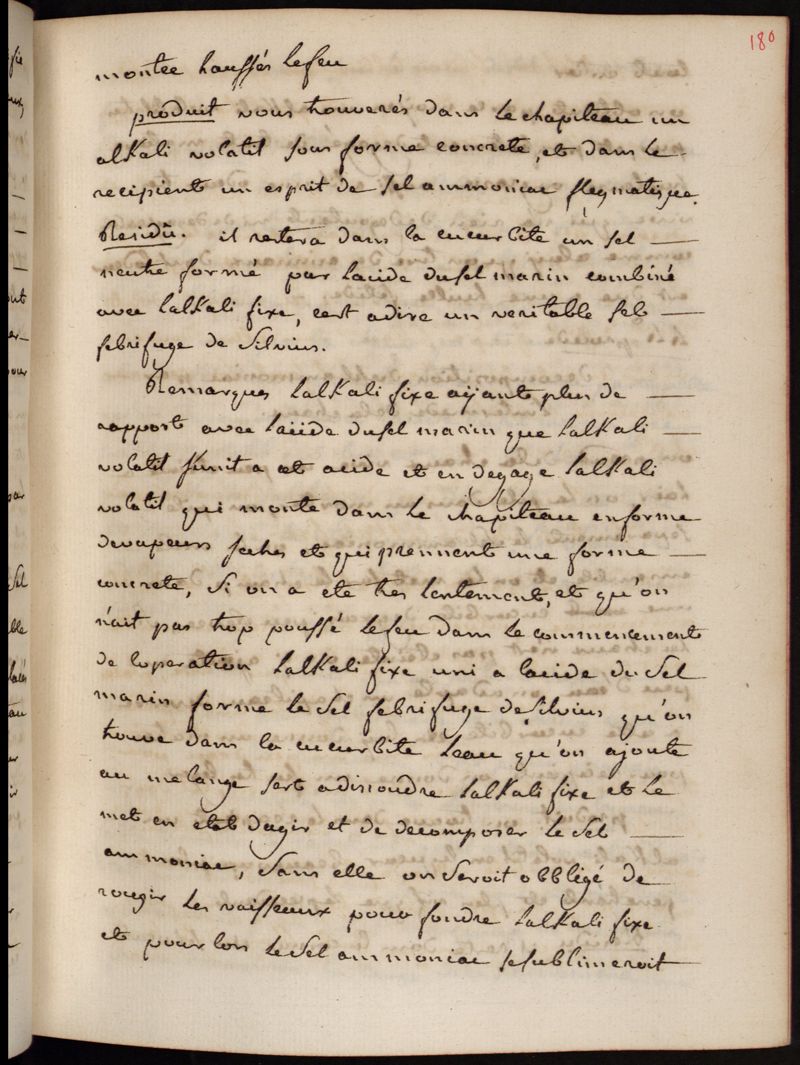 180
montée haussés lefeu
produit vous trouverés dans le chapiteau un
alkali volatil sous forme concrete, et dans le
recipient un esprit de sel ammoniac flegmatique.
Residu. il restera dans la cucurbite un sel
neutre formé par lacide dusel marin combiné
avec lalkali fixe, cest adire un veritable sel
febrifuge de Silvius.
Remarques lalkali fixe ayant plus de
rapport avec lacide dusel marin que lalkali
volatil sunit a cet acide et en degage lalkali
volatil qui monte dans le chapiteau enforme
devapeurs seches et qui prennent une forme
concrete, si on a eté tres lentement, et qu'on
n'ait pas trop poussé lefeu dans le commencement
de loperation lalkali fixe uni a lacide du sel
marin forme le sel febrifuge de Silvius qu'on
trouve dans la cucurbite leau qu'on ajoute
au melange sert adissoudre lalkali fixe et le
met en etat dagir et de decomposer le sel
ammoniac, sans elle on seroit obbligé de
rougir les vaisseaux pour fondre lalkali fixe
et pour lors le sel ammoniac sesublimeroit